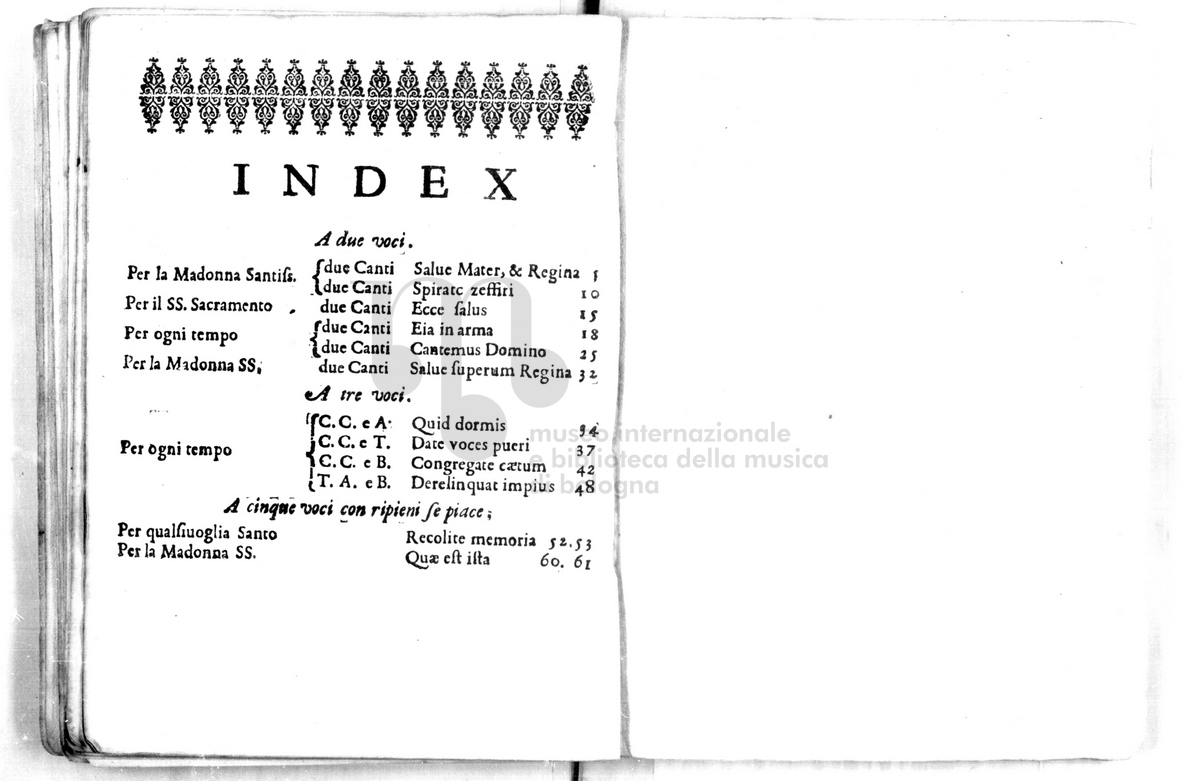 INDEX
A due voci.
Per la Madonna Santiſs. {due Canti Salue Mater, & Regina 5
{due Canti Spirate zeffiri 10
Per il SS. Sacramento . due Canti Ecce ſalus 15
Per ogni tempo {due Canti Eia in arma 18
{due Canti Cantemus Domino 25
Per la Madonna SS. due Canti Salue ſuperum Regina 32
A tre voci.
Per ogni tempo {C. C. e A. Quid dormis 34
C. C. e T. Date voces pueri 37
C. C. e B. Congregate cætum 42
T. A. e B. Derelinquat impius 48
A cinque voci con ripieni ſe piace;
Per qualſiuoglia Santo Recolite memoria 52.53
Per la Madonna SS. Quæ eſt iſta 60. 61
museo internazionale
e biblioteca della musica
di bologna